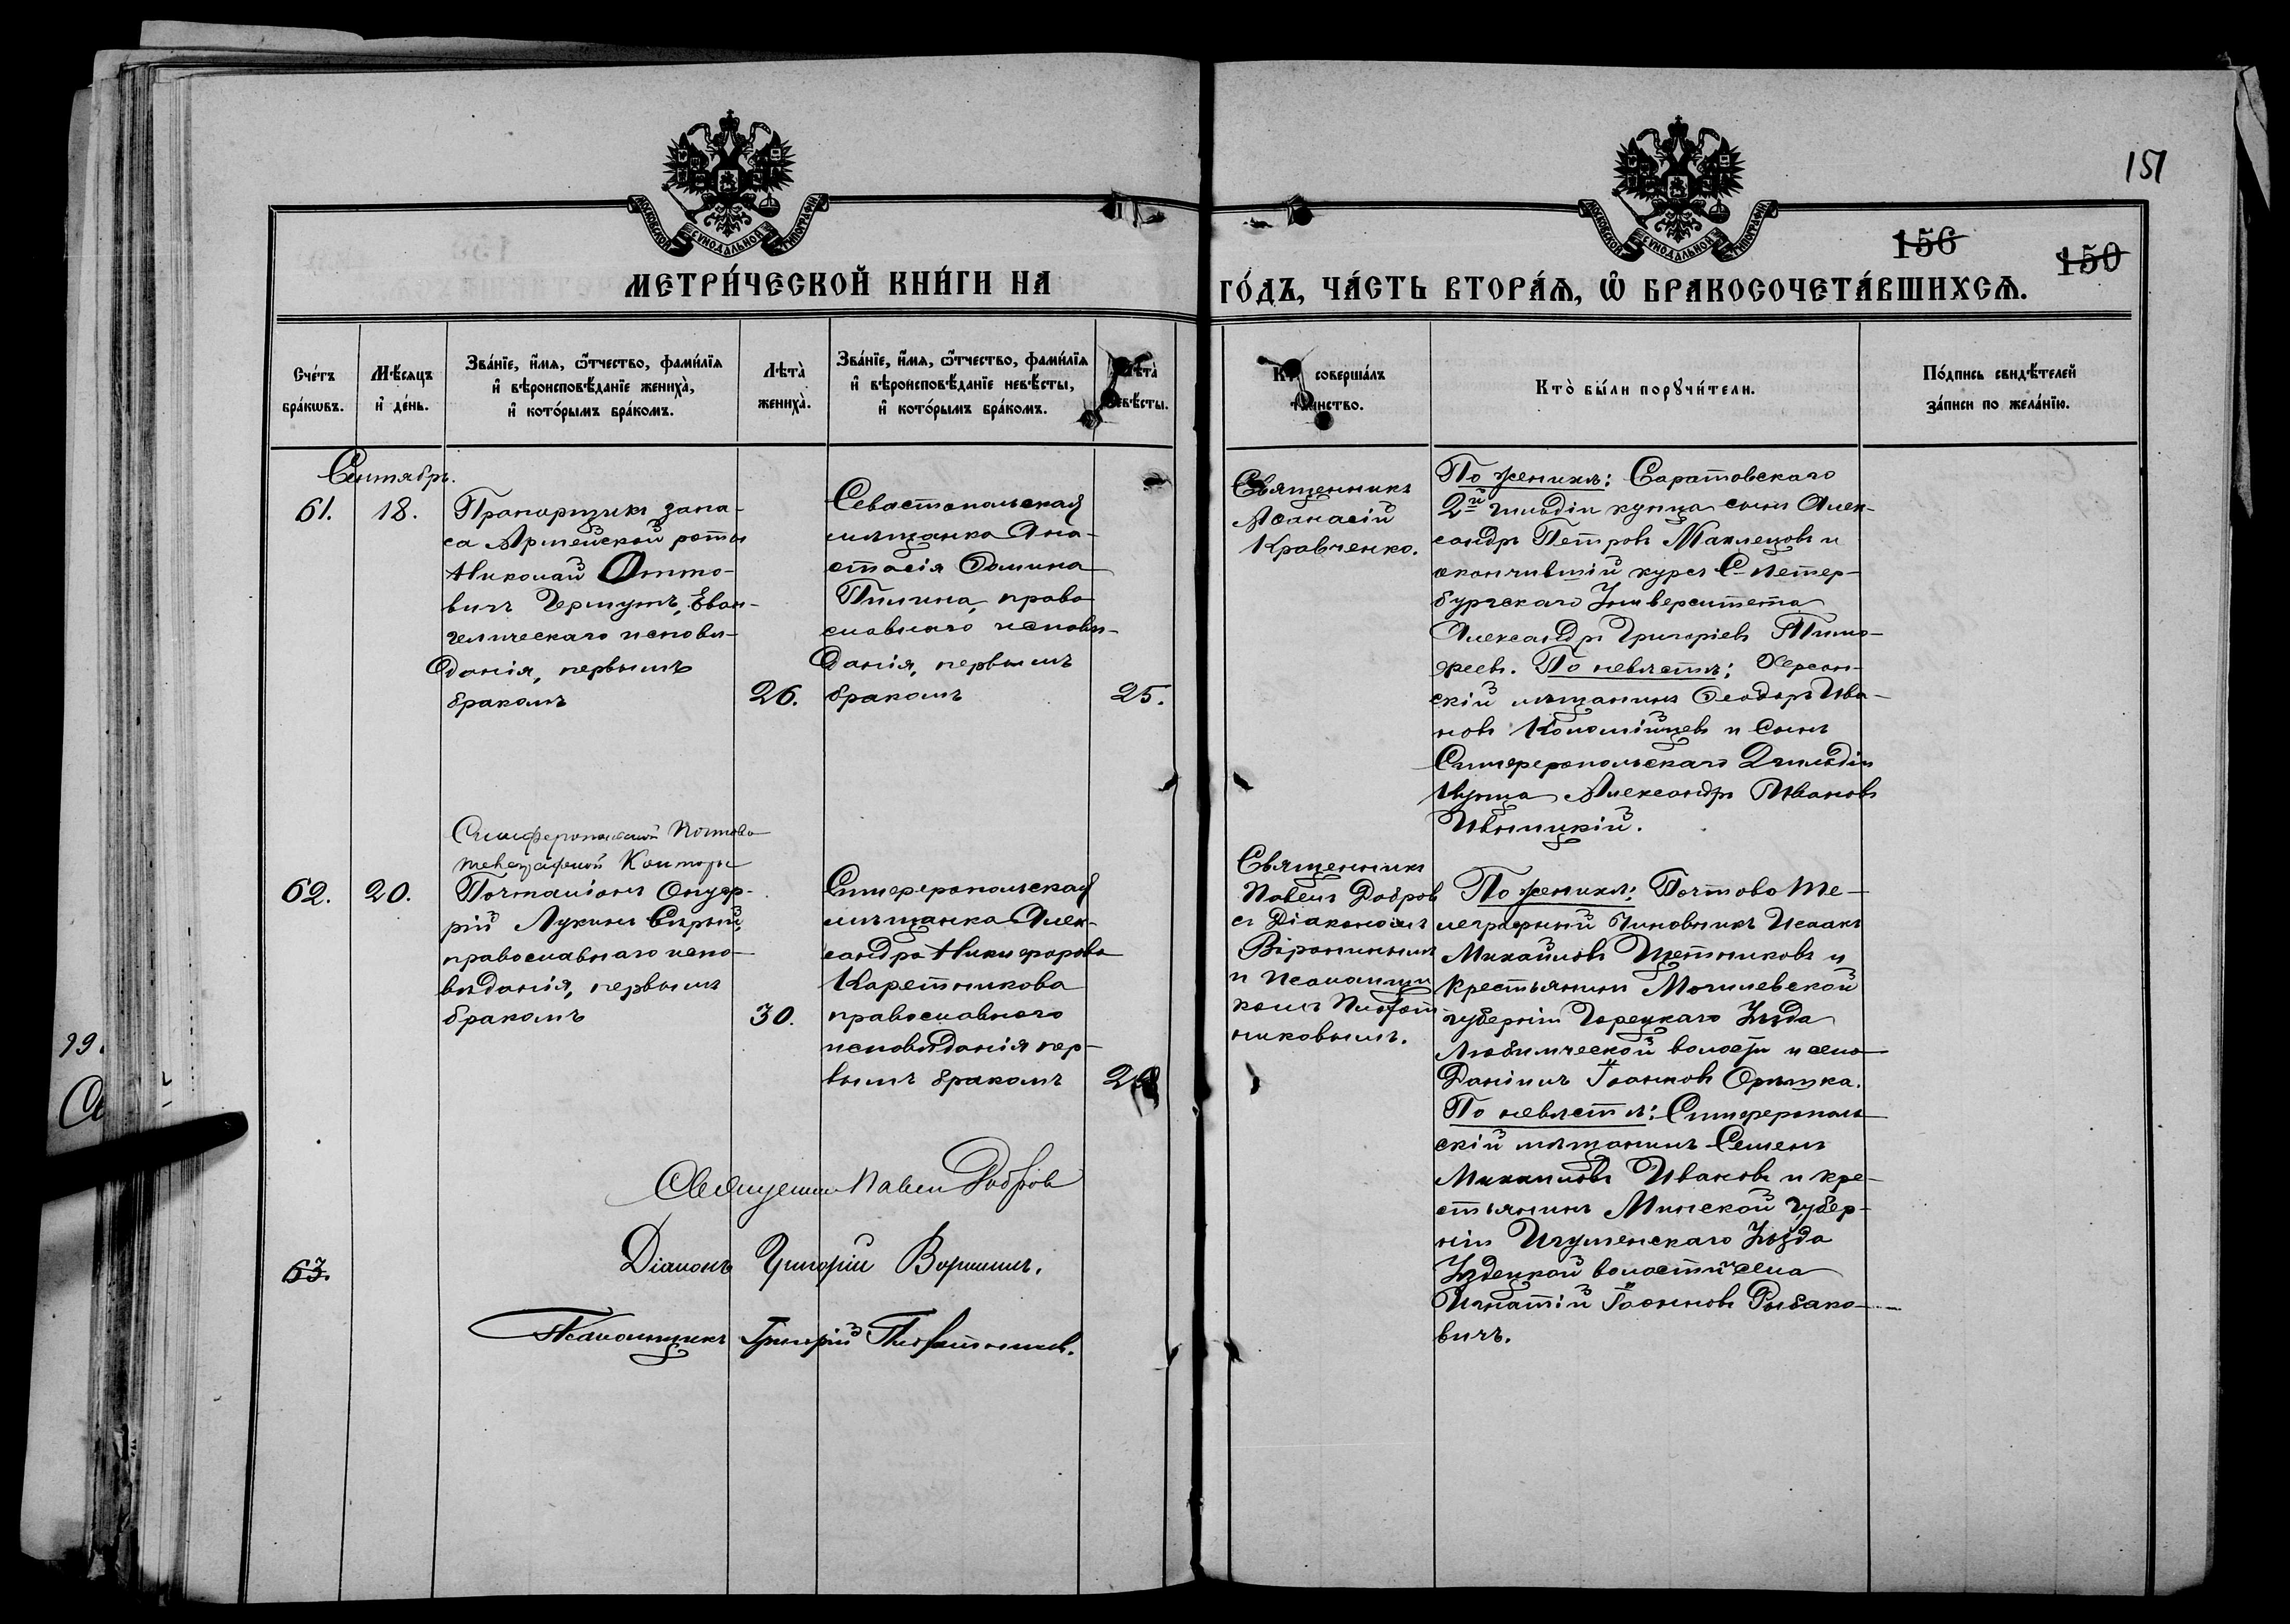 151
156
150
МОСКОВСКОЙ СѴНОДАЛЬНОЙ ТИПОГРАФІИ
МОСКОВСКОЙ СѴНОДАЛЬНОЙ ТИПОГРАФІИ
МЕТРИ́ЧЕСКОЙ КНИ́ГИ НА
ГО́ДЪ, ЧА́СТЬ ВТОРА́Я, Ѡ҆ БРАКОСОЧЕТА́ВШИХСѦ.
Сче́тъ
бра́кѡвъ.
Мѣ́сяцъ
и҆ де́нь.
Зва́нїе, и҆́мя, ѻ҆́тчество, фами́лїя
и҆ вѣроисповѣ́данїе жениха̀,
и҆ кото́рымъ бра́комъ.
Лѣта̀
жениха̀.
Зва́нїе, и҆́мя, ѻ҆́тчество, фами́лїя
и҆ вѣроисповѣ́данїе невѣ́сты,
и҆ кото́рымъ бра́комъ.
Лѣта̀
невѣ́сты.
Кто̀ соверша́лъ
таинство.
Кто̀ бы́ли порꙋчи́тели.
По́дпись свидѣ́телей
за́писи по жела́нїю.
Сентябрь.
61.
18.
Прапорщикъ запа-
са Армейской роты
Николай Отто-
вичъ Гермутъ, Еван-
гелическаго исповѣ-
данія, первымъ
бракомъ
26.
Севастопольская
мѣщанка Ана-
стасія Фомина
Пилина, право
славнаго исповѣ-
данія, первымъ
бракомъ
25.
Священникъ
Аѳанасій
Кравченко.
По женихѣ: Саратовскаго
2й гильдіи купца сынъ Алек-
сандръ Петровъ Маклецовъ и
окончившій курсъ С-Петер-
бургскаго Университета
Александръ Григоріевъ Тимо-
феевъ. По невѣстѣ: Херсон-
скій мѣщанинъ Ѳеодоръ Ива-
новъ Коломійцевъ и сынъ
Симферопольскаго 2 гильдіи
Купца Александръ Ивановъ
Ивницкій.
Симферопольской Почтово
телеграфной Конторы
62.
20.
Почталіонъ Онуф-
рій Лукинъ Сѣрый,
православнаго испо-
вѣданія, первымъ
бракомъ
30.
Симферопольская
мѣщанка Алек-
сандра Никифорова
Каретникова
православнаго
исповѣданія пер-
вымъ бракомъ
Священникъ
Павелъ Добров
съ Діакономъ
Воронинымъ
и Псаломщи
комъ Плотот
никовымъ.
По женихѣ: Почтово Те-
леграфный Чиновникъ Исаакъ
Михайловъ Щетниковъ и
Крестьянинъ Могилевской
губерніи Горецкаго Уѣзда
Любиничеcкой волости и села
Даніилъ Іоанновъ Орѣшка.
По невѣстѣ: Симферополь
скій мѣщанинъ Семенъ
Михаиловъ Ивановъ и кре-
стьянинъ Минской губер-
ніи Игуменскаго Уѣзда
Уздецкой волости и села
Игнатій Іоанновъ Рыбако-
вичъ.
Священникъ Павелъ Добровъ
Діаконъ Григорій Воронинъ.
63.
Псаломщикъ Григорій Плотниковъ.